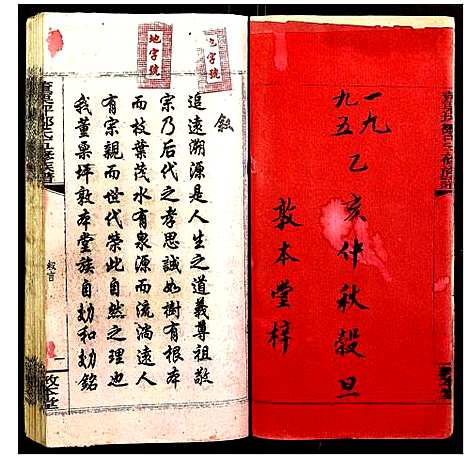 一九
九五
乙亥仲秋穀旦
敦本堂梓
地字號
字號
敘
追遠溯源是人生之道義尊祖敬
宗乃后代之孝思誠如樹有根本
而枝葉茂水有泉源而流湍遠人
有宗親而世代榮此自然之理也
我董栗坪敦本堂族自勀和勀銘
敘言
一
敦本堂